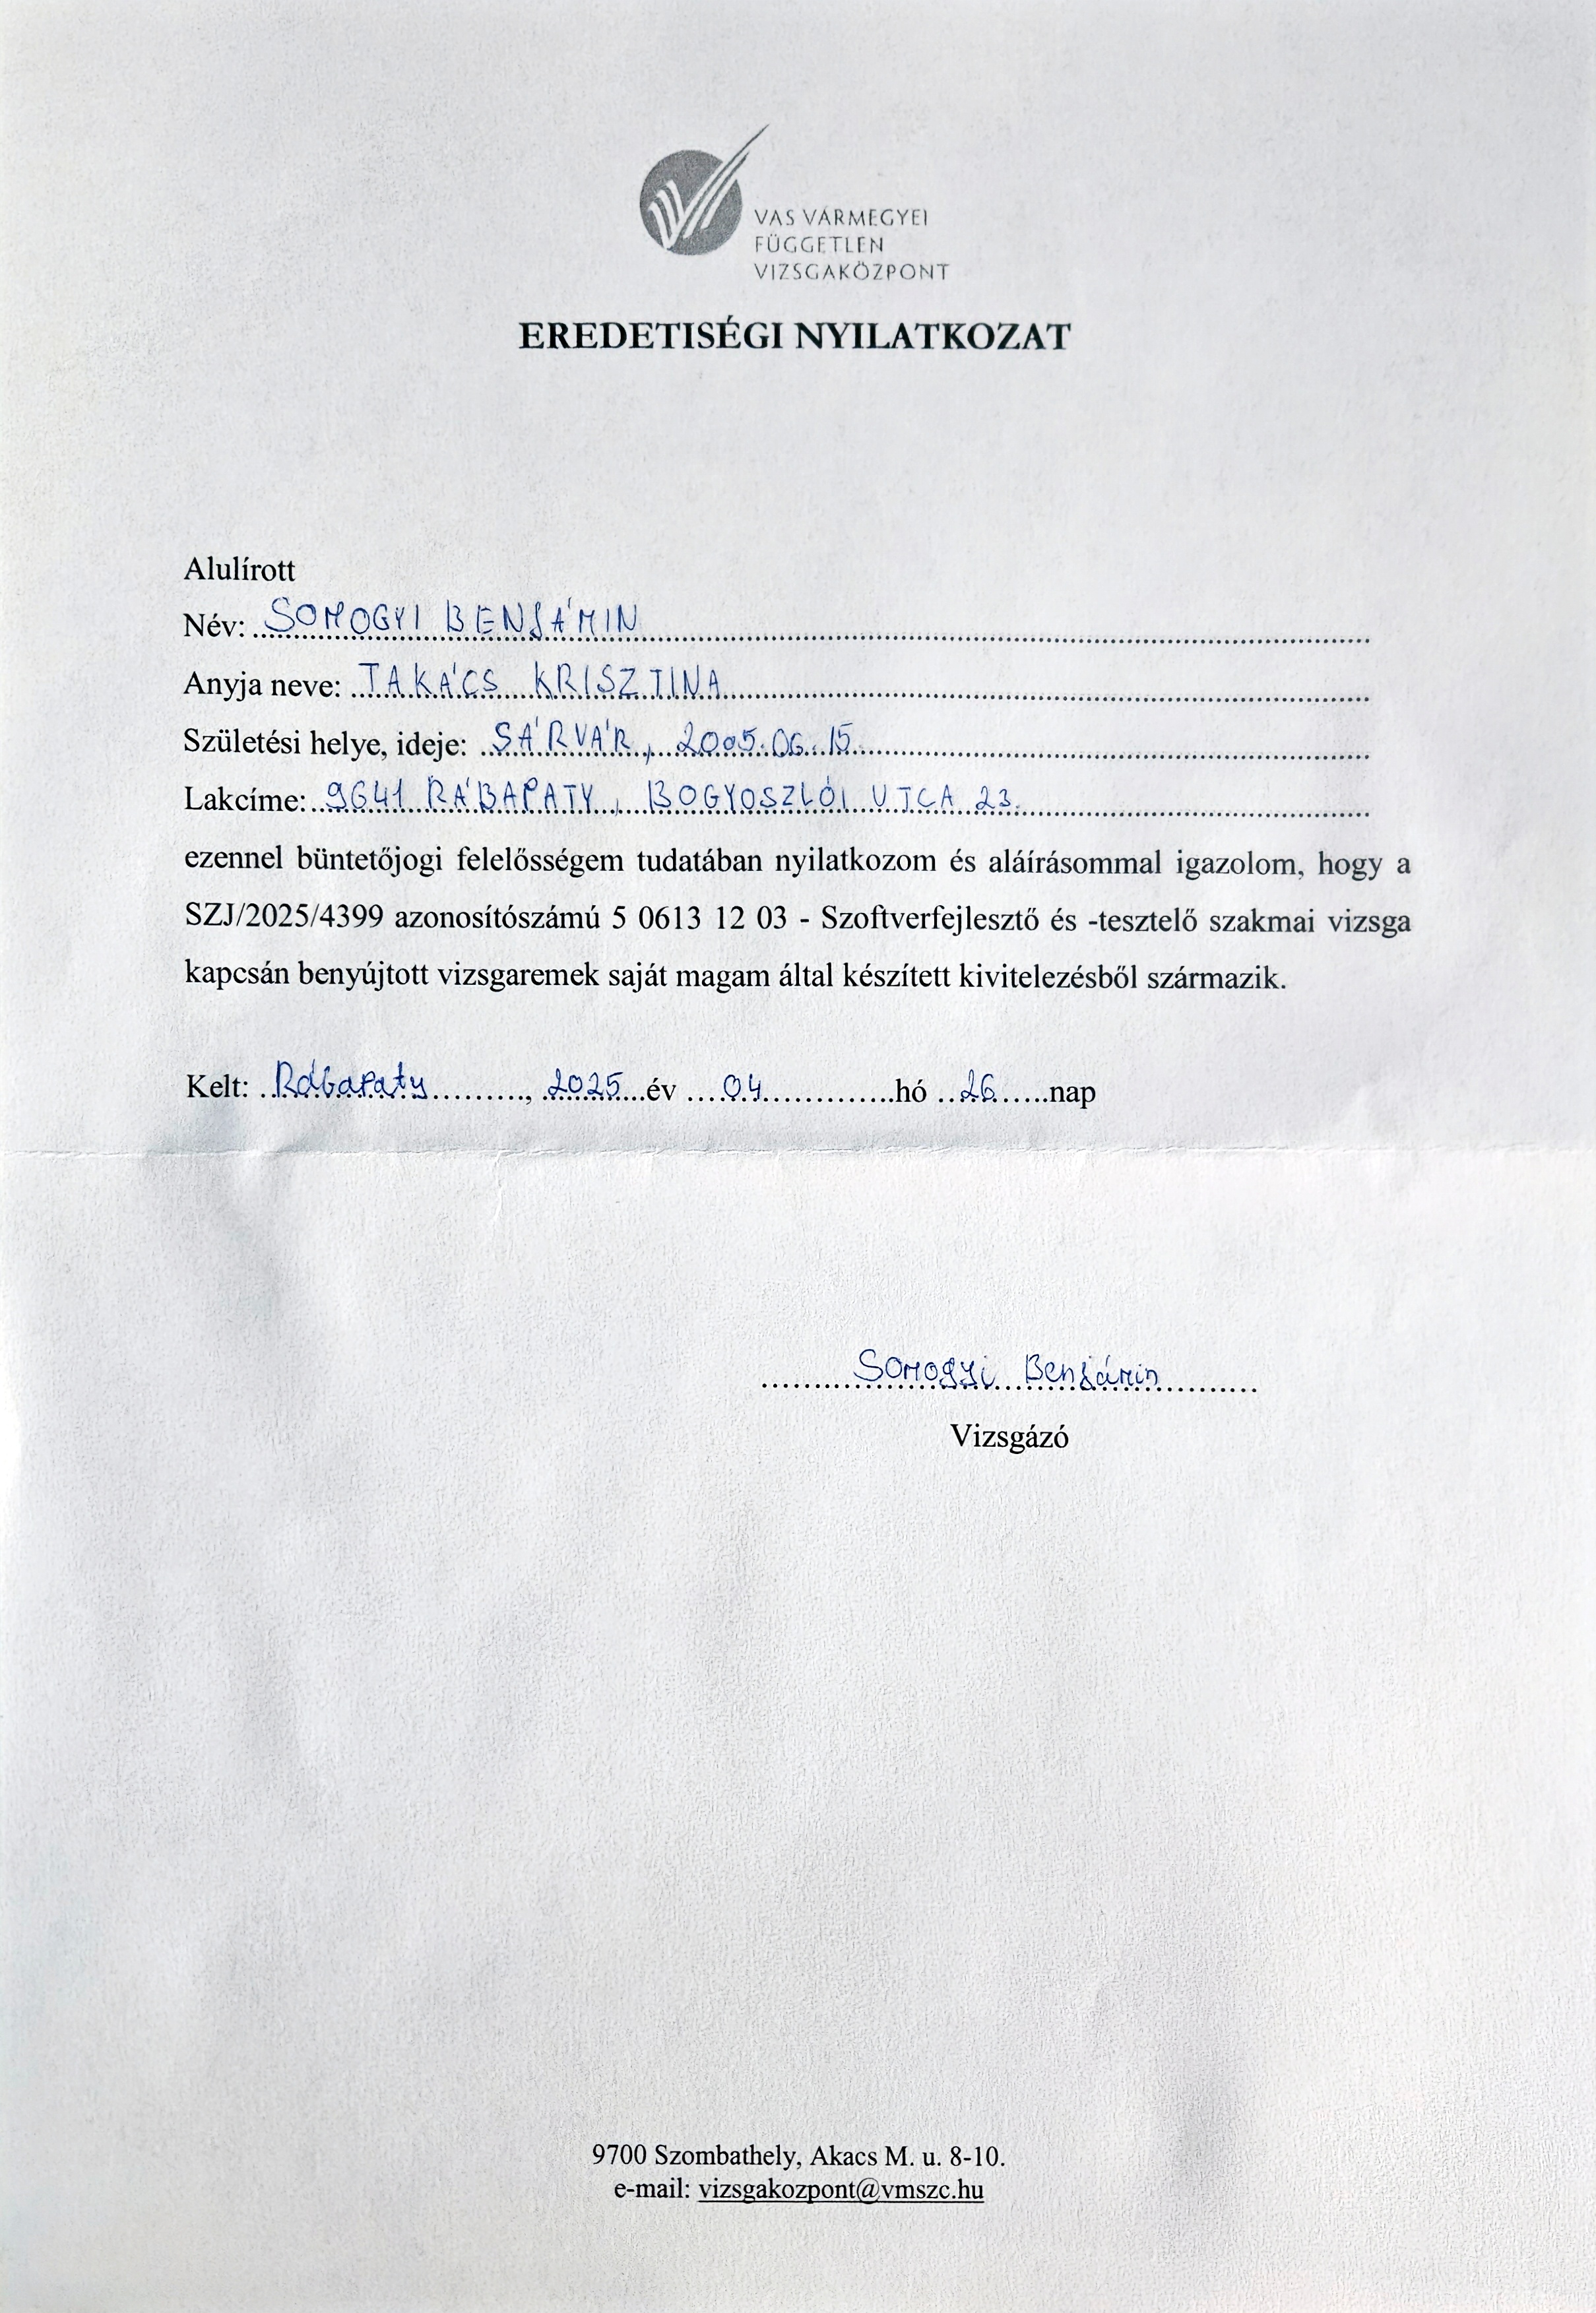 VAS VÁRMEGYEI
FÜGGETLEN
VIZSGAKÖZPONT
EREDETISÉGI NYILATKOZAT
Alulírott
Név: SOMOGYI BENJÁMIN
Anyja neve: TAKÁCS KRISZTINA
Születési helye, ideje: SÁRVÁR, 2005.06.15
Lakcíme: 9641 RÁBAPATY, BOGYOSZLÓI UTCA 23.
ezennel büntetőjogi felelősségem tudatában nyilatkozom és aláírásommal igazolom, hogy a
SZJ/2025/4399 azonosítószámú 5 0613 12 03 - Szoftverfejlesztő és -tesztelő szakmai vizsga
kapcsán benyújtott vizsgaremek saját magam által készített kivitelezésből származik.
Kelt: Rábapaty, 2025 év 04 hó 26 nap
Somogyi Benjámin
Vizsgázó
9700 Szombathely, Akacs M. u. 8-10.
e-mail: vizsgakozpont@vmszc.hu